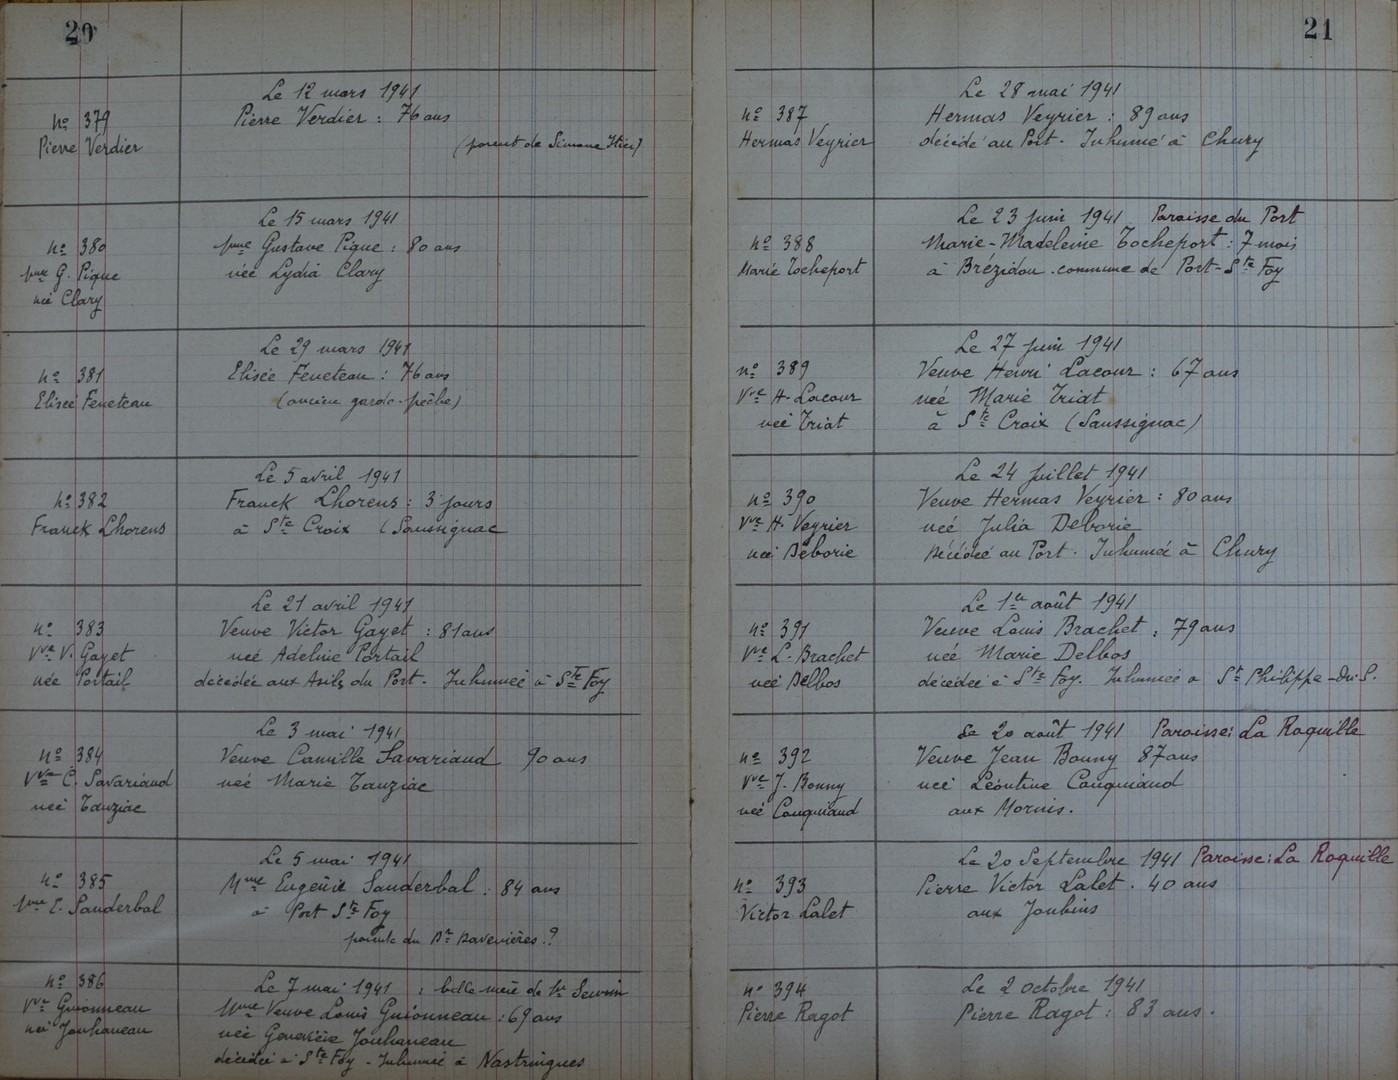 20
Le 12 mars 1941
nº 379
Pierre Verdier : 76 ans
Pierre Verdier
(parent de Simone
Le 15 mars 1941
nº 380
Mme Gustave Pique : 80 ans
Mme G. Pique
née Lydia Clary
née Clary
Le 29 mars 1941
nº 381
Elisée Feneteau : 76 ans
Elisée Feneteau
(ancien garde-pêche)
Le 5 avril 1941
nº 382
Franck Lhorens : 3 jours
Franck Lhorens
à Ste Croix (Saussignac
Le 21 avril 1941
nº 383
Veuve Victor Gayet : 81 ans
Vve V. Gayet
née Adeline Portail
née Portail
décédée aux Asiles du Port. Inhumée à Ste Foy
Le 3 mai 1941
nº 384
Veuve Camille Savariaud 90 ans
Vve C. Savariaud
née Marie Tauziac
née Tauziac
Le 5 mai 1941
nº 385
Mme Eugénie Sanderbal : 84 ans
Mme E. Sanderbal
à Port Ste Foy
parente du Dr ?
nº 386
Le 7 mai 1941 : belle mère de Mr
Vve Guionneau
Mme Veuve Louis Guionneau : 69 ans
née Jouhaneau
née Geneviève Jouhaneau
décédée à Ste Foy - Inhumée à Nastringues
21
Le 28 mai 1941
nº 387
Hermas Veyrier : 89 ans
Hermas Veyrier
décédé au Port. Inhumé à Chury
Le 23 juin 1941 Paroisse du Port
nº 388
Marie-Madeleine Tocheport : 7 mois
Marie Tocheport
à Brézidou. commune de Port-Ste Foy
Le 27 juin 1941
nº 389
Veuve Henri Lacour : 67 ans
Vve H. Lacour
née Marie Triat
née Triat
à Ste Croix (Saussignac)
Le 24 juillet 1941
nº 390
Veuve Hermas Veyrier : 80 ans
Vve H. Veyrier
née Julia Deborie
née Déborie
Décédée au Port. Inhumée à Chury
Le 1er août 1941
nº 391
Veuve Louis Brachet : 79 ans
Vve L. Brachet
née Marie Delbos
née Delbos
décédée à Ste Foy. Inhumée à St Philippe-du-S.
Le 20 août 1941 Paroisse: La Roquille
nº 392
Veuve Jean Bonny 87 ans
Vve J. Bonny
née Léontine Couquiaud
née Couquiaud
aux Mornis.
Le 20 Septembre 1941 Paroisse: La Roquille
nº 393
Pierre Victor Lalet. 40 ans
Victor Lalet
aux Joubins
Le 2 octobre 1941
nº 394
Pierre Ragot : 83 ans.
Pierre Ragot